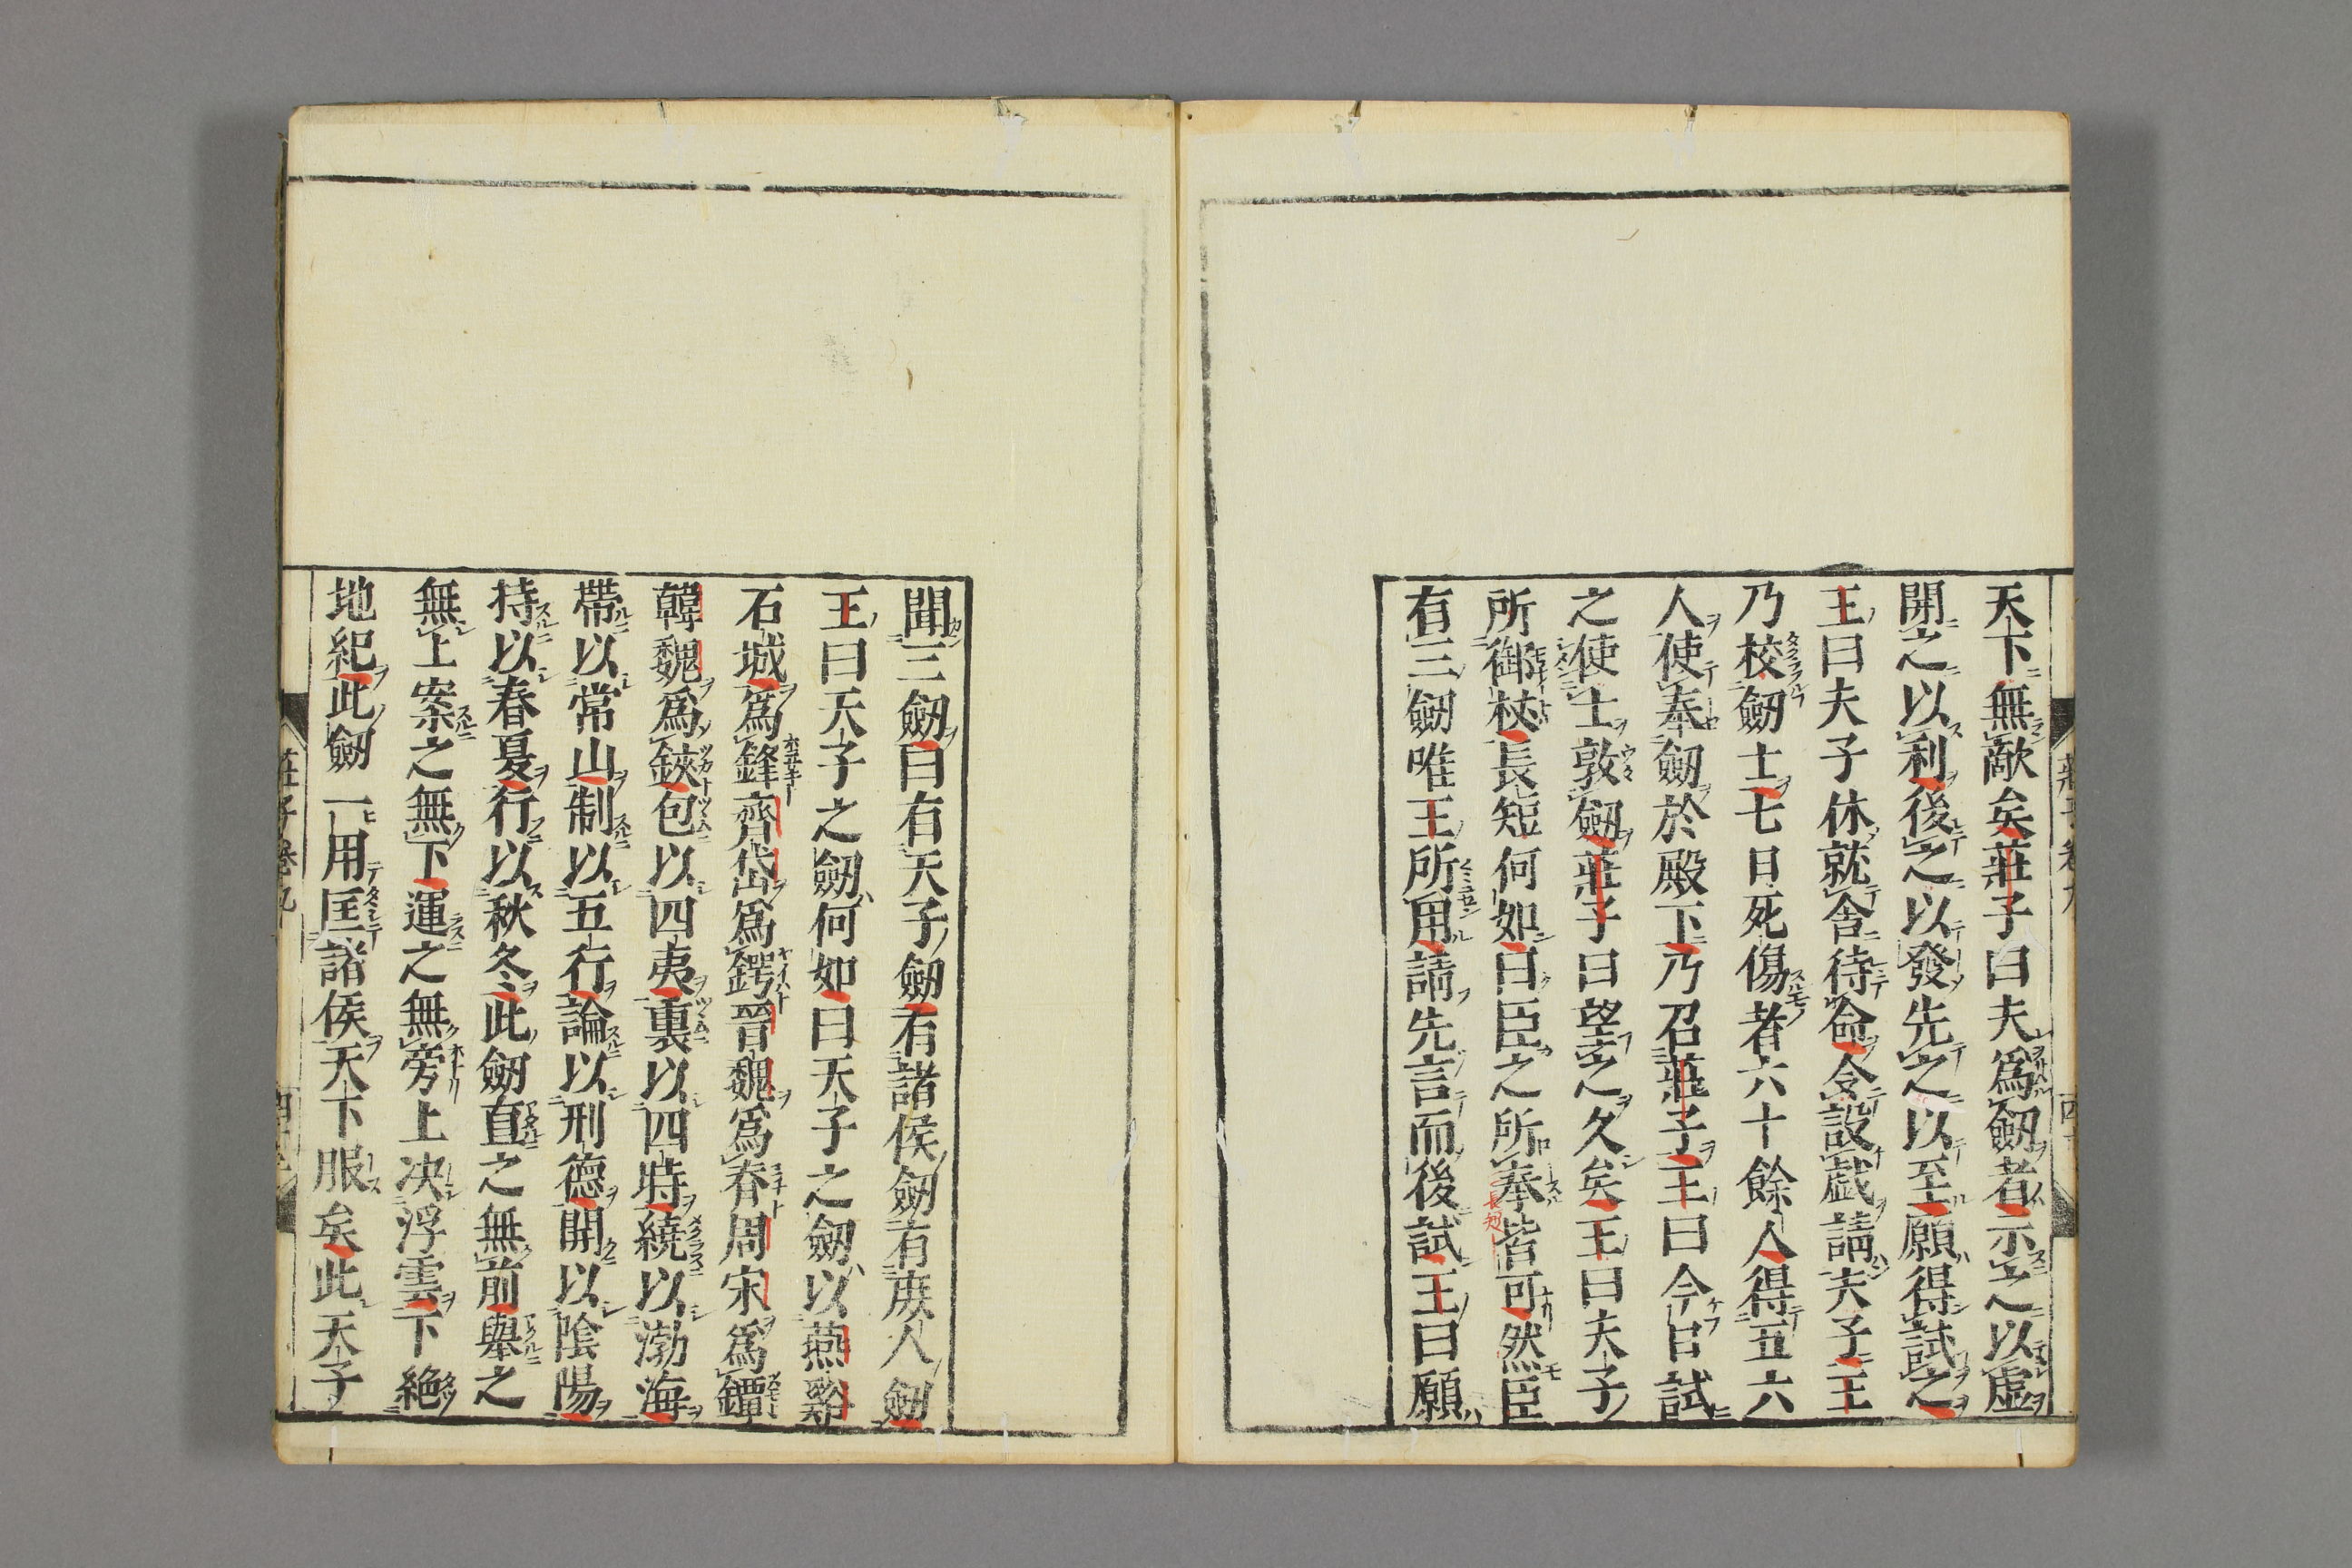 天下無敵矣莊子曰夫爲劒者示之以虛
開之以利後之以發先之以至願得試之
王曰夫子休就舍待命令設戯請夫子王
乃校劒士七日死傷者六十餘人得五六
人使奉劒於殿下乃召莊子王曰今日試
之使士敦劒莊子曰望之久矣王曰夫子
所御杖長短何如曰臣之所奉皆可然臣
有三劒唯王所用請先言而後試王曰願
聞三劒曰有天子劒有諸侯劒有庻人劒
王曰天子之劒何如曰天子之劒以燕谿
石城爲鋒齊岱爲鍔晉魏爲春周宋爲鐔
韓魏爲鋏包以四夷裹以四時繞以渤海
帶以常山制以五行論以刑德開以陰陽
持以春夏行以秋冬此劒直之無前舉之
無上案之無下運之無旁上决浮雲下絕
地紀此劒一用匡諸侯天下服矣此天子
莊子卷九